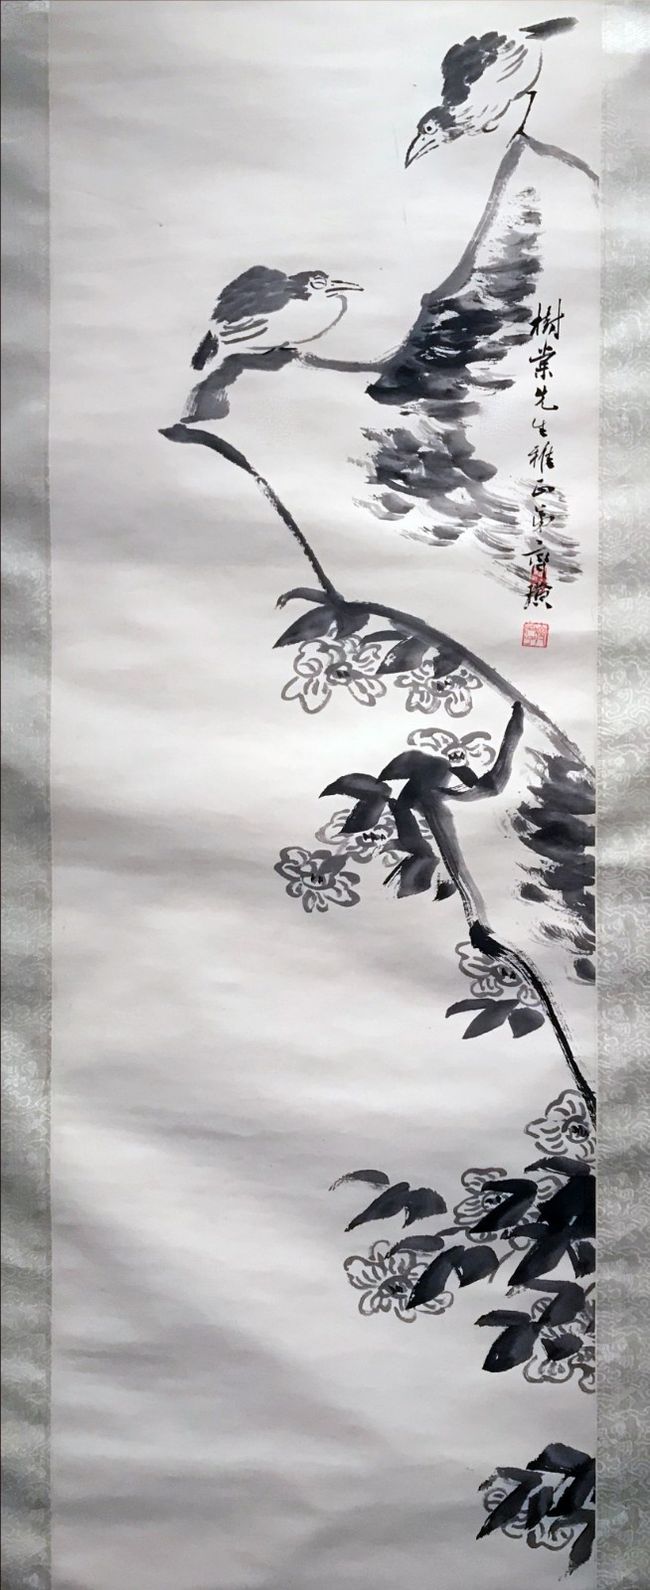 樹業先生雅正弟齊璜